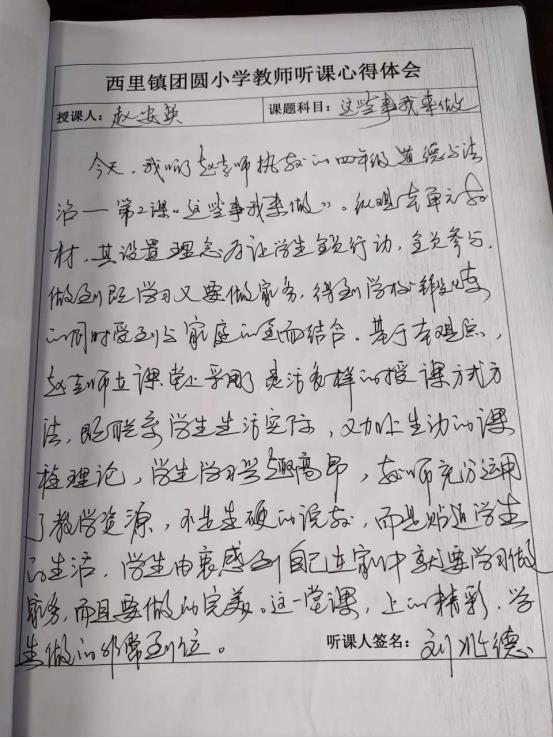 西里镇团圆小学教师听课心得体会
授课人：赵安英 课题科目：这些事我来做
今天，我听赵老师执教的四年级道德与法
治一第2课“这些事我来做”。纵观本单元教
材，其设置理念为让学生全员行动，全员参与，
做到既学习又要做家务，得到学校
的同时受到与家庭的全面结合。基于本观点，
赵老师在课堂上采用了灵活多样的授课方式方
法，既联系学生生活实际，又加上生动的课
程理论，学生学习兴趣高昂，教师充分运用
了教学资源，不是生硬的说教，而是贴近学生
的生活，学生由衷感到自己在家中就要学习做
家务，而且要做的完美。这一堂课，上的精彩，学
生做的非常到位。 听课人签名：刘兆德